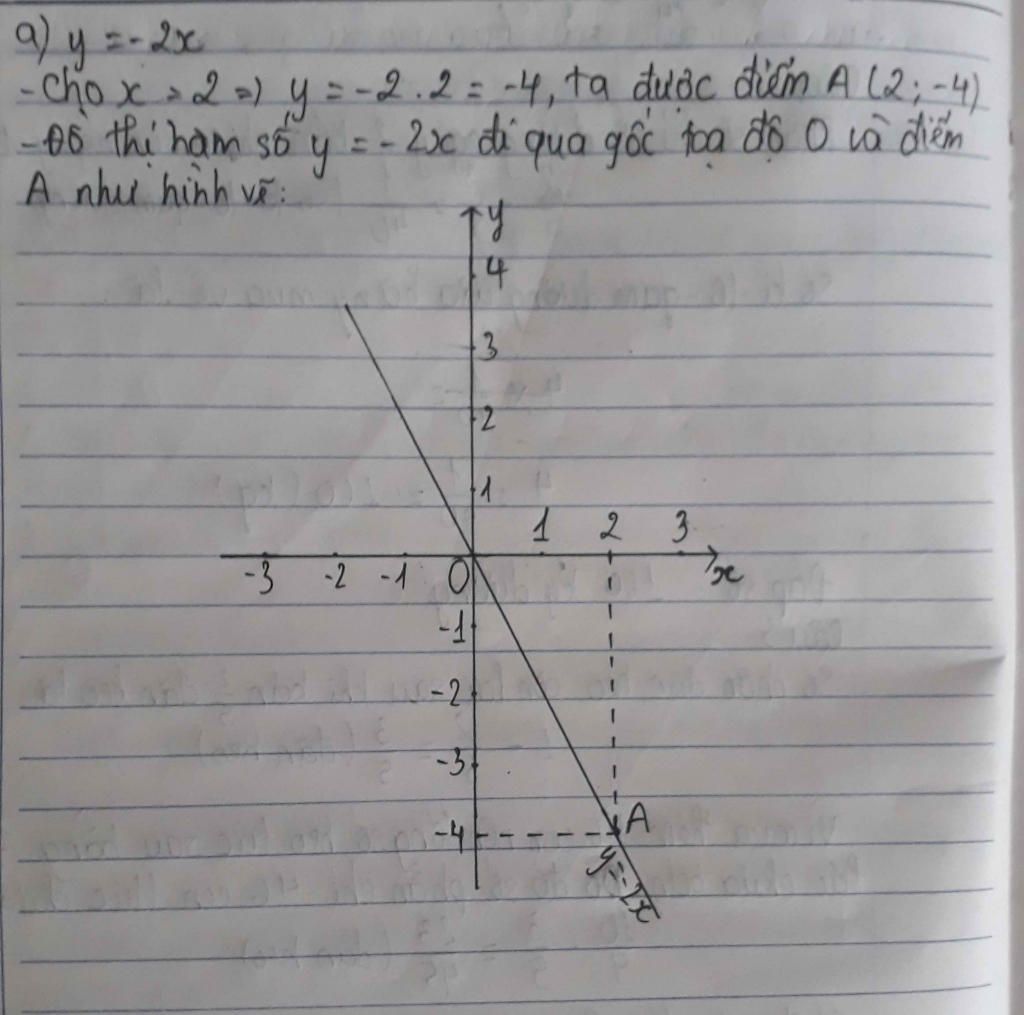 a) y = -2x
- Chọn x = 2 => y = -2 . 2 = -4, ta được điểm A (2; -4)
- Đồ thị hàm số y = -2x đi qua gốc toạ độ O và điểm
A như hình vẽ:
y
4
3
2
1
1 2 3
-3 -2 -1 O x
-1
-2
-3
-4 A
y=-2x